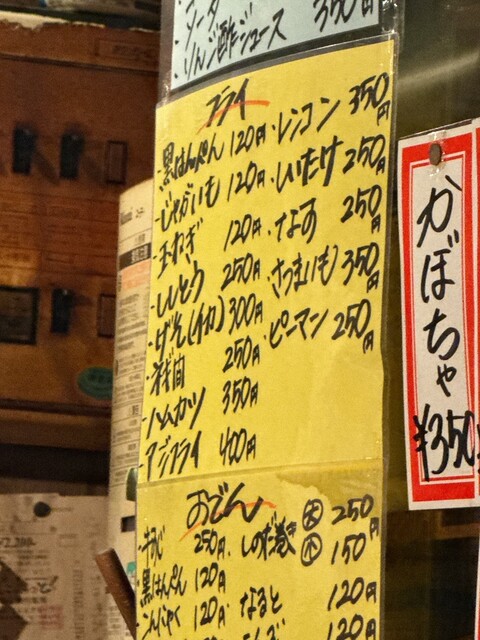 りんご酢ジュース 350円
フライ
・黒はんぺん 120円 ・レンコン 350円
・じゃがいも 120円 ・しいたけ 250円
・玉ねぎ 120円 ・なす 250円
・ししとう 250円 ・さつまいも 350円
・げそ(イカ) 300円 ・ピーマン 250円
250円
・ハムカツ 350円
・アジフライ 400円
おでん
・牛すじ 250円 ・しのだ巻き 大 250
小 150
・黒はんぺん 120円
・こんにゃく 120円 ・なると 120円
120円
かぼちゃ
¥350